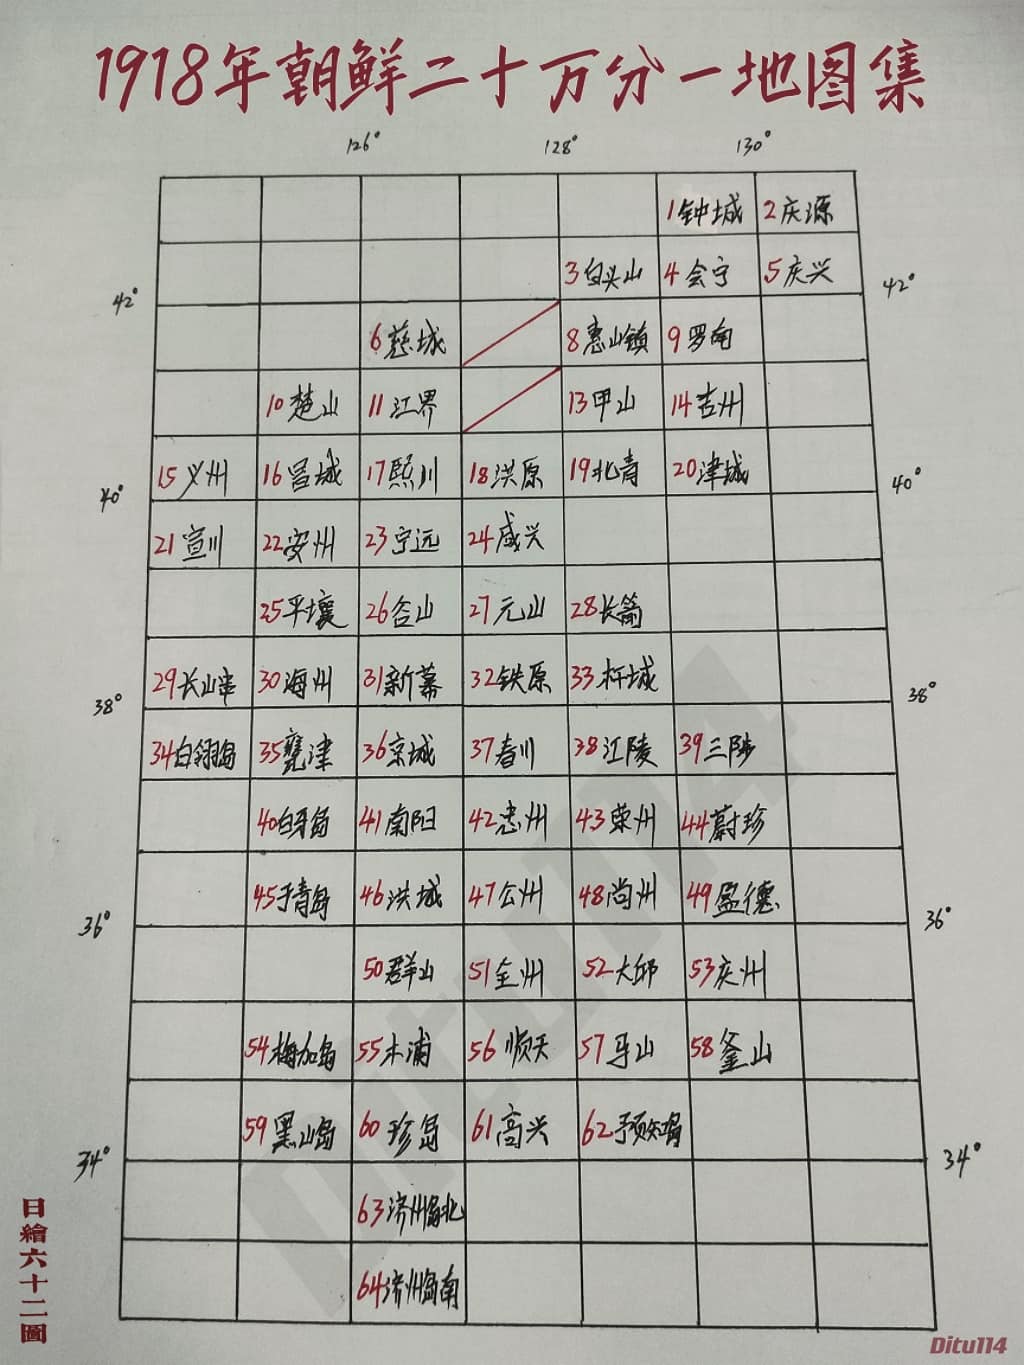 1918年朝鲜二十万分一地图集
126° 128° 130°
1钟城 2庆源
3白头山 4会宁 5庆兴
42° 42°
6慈城 8惠山镇 9罗南
10楚山 11江界 13甲山 14吉州
15义州 16昌城 17熙川 18洪原 19北青 20津城
40° 40°
21宣川 22安州 23宁远 24咸兴
25平壤 26谷山 27元山 28长箭
29长山串 30海州 31新幕 32铁原 33杆城
38° 38°
34白翎岛 35瓮津 36京城 37春川 38江陵 39三陟
40白牙岛 41南阳 42忠州 43荣州 44蔚珍
45于青岛 46洪城 47公州 48尚州 49盈德
36° 36°
50群山 51全州 52大邱 53庆州
54梅加岛 55木浦 56顺天 57马山 58釜山
59黑山岛 60珍岛 61高兴 62予知岛
34° 34°
63济州岛北
64济州岛南
日繪六十二圖
Ditu114
Ditu114